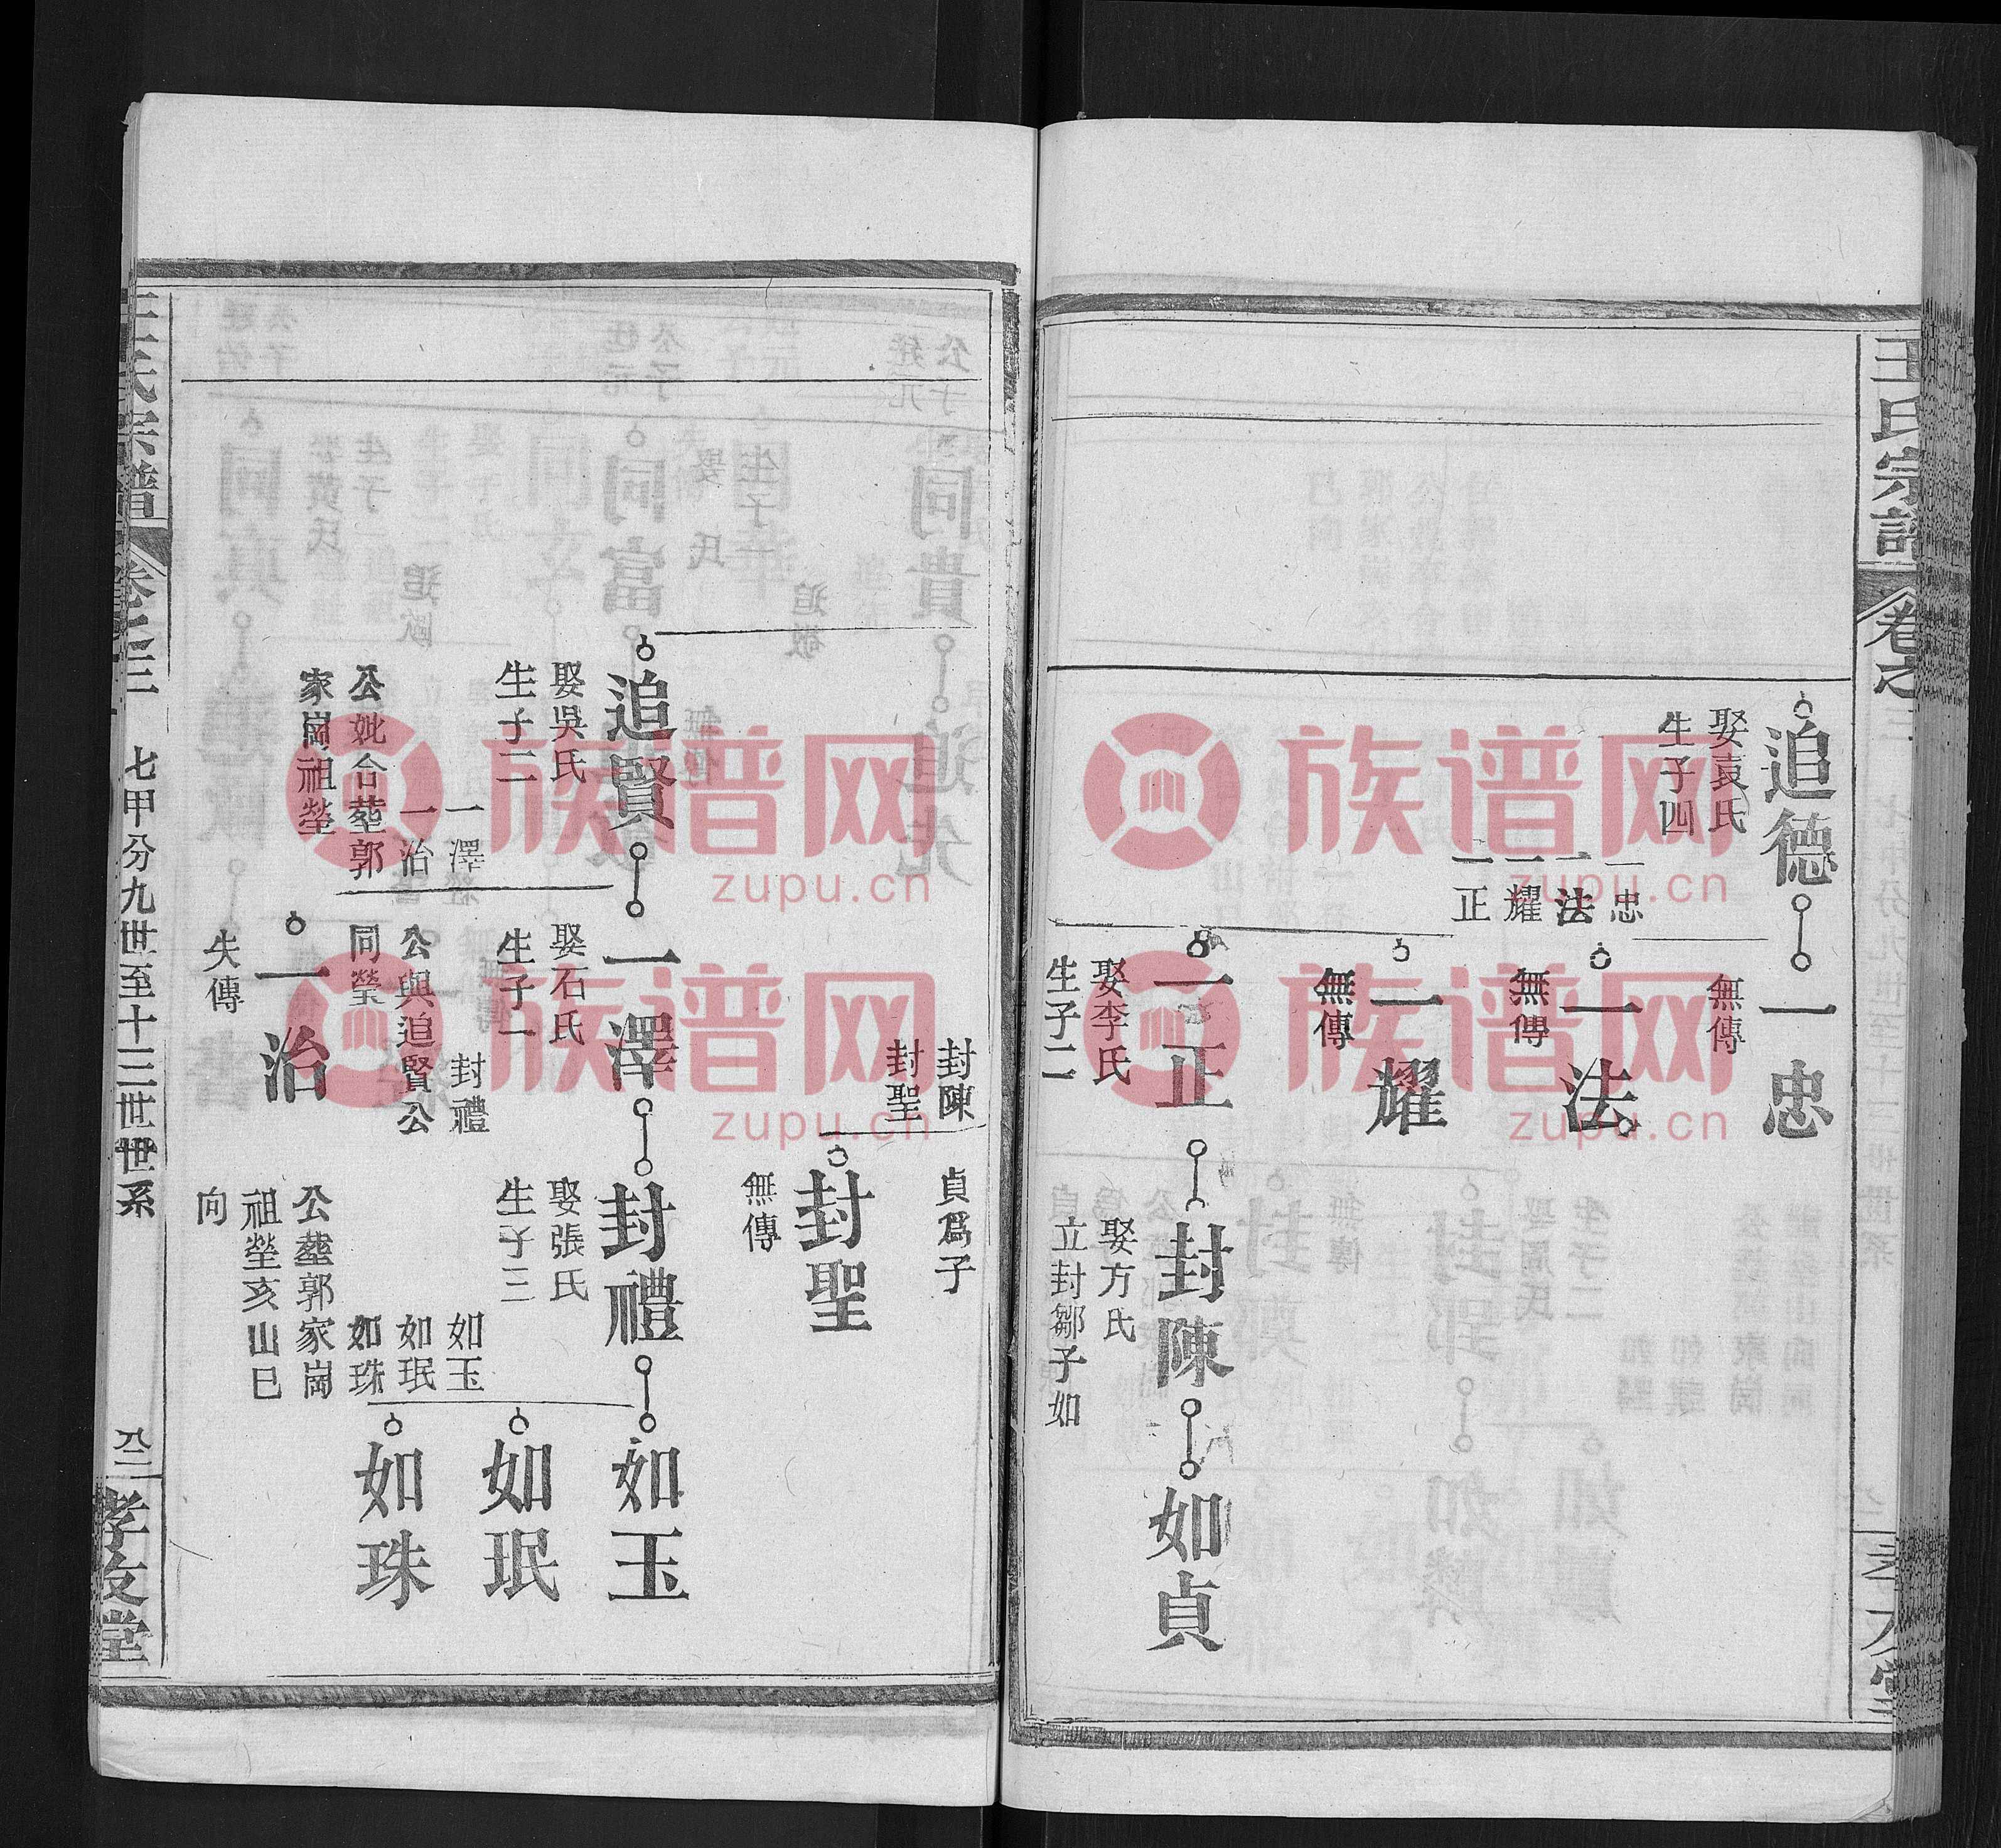 王氏宗譜
卷之
追德
娶袁氏
生子四
一忠
一法
一耀
一正
一忠
無傳
一法
無傳
一耀
無傳
一正
娶李氏
生子二
封陳
娶方氏
立封鄒子如
如貞
封陳
封聖
貞爲子
封聖
無傳
追賢
娶吳氏
生子二
一澤
一治
公妣合塟郭
家崗祖塋
一澤
娶石氏
生子一
封禮
公與追賢公
同塋
一治
失傳
封禮
娶張氏
生子三
如玉
如珉
如珠
公塟郭家崗
祖塋亥山巳
向
如玉
如珉
如珠
王氏宗譜
卷之三
七甲分九世至十三世世系
孝友堂
族谱网
zupu.cn
族谱网
zupu.cn
族谱网
zupu.cn
族谱网
zupu.cn